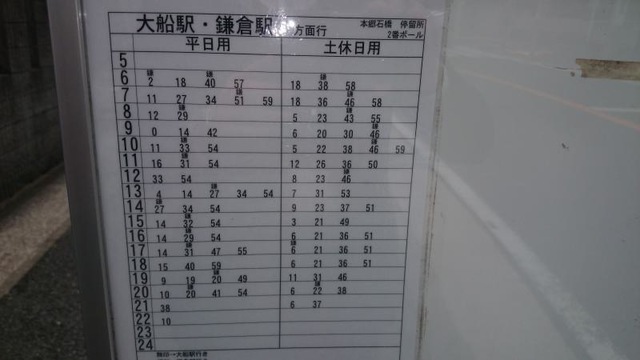 大船駅・鎌倉駅 方面行 本郷石橋 停留所
2番ポール
平日用 土休日用
5
鎌 鎌 鎌
6 2 18 40 57 18 38 58
鎌 鎌
7 11 27 34 51 59 18 36 46 58
8 12 29 5 23 43 55
鎌
9 0 14 42 6 20 30 46
鎌 鎌
10 11 33 54 5 22 38 46 59
11 16 31 54 12 26 36 50
鎌
12 33 54 8 23 46
鎌
13 4 14 27 34 54 7 31 53
鎌
14 27 34 54 9 23 37 51
鎌
15 14 32 54 3 21 49
鎌
16 14 29 54 6 21 36 51
鎌 鎌
17 14 31 47 55 6 21 36 51
18 15 40 59 6 21 36 51
鎌
19 9 19 20 49 11 31 46
鎌 鎌
20 10 20 41 54 6 22 38
21 38 6 37
22 10
23
24
無印→大船駅行き